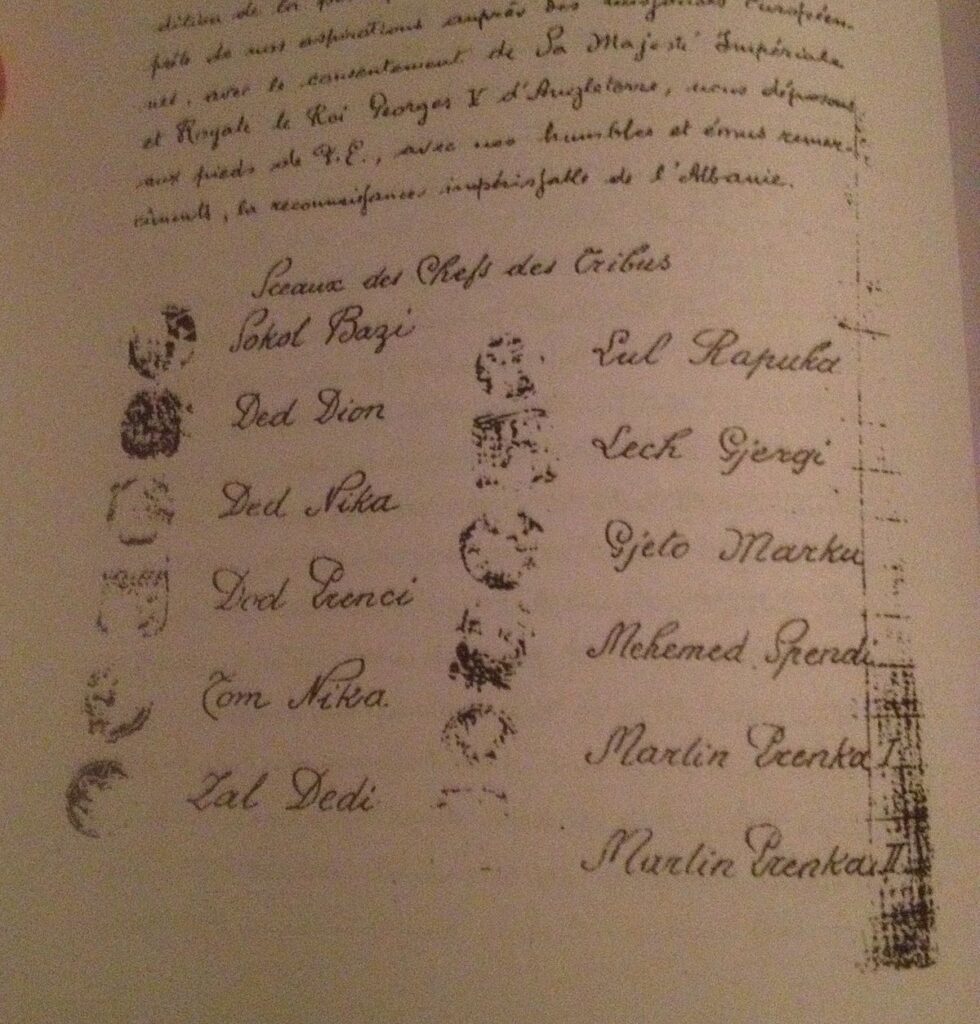 dition de la
pète de nos aspirations auprès des puissances Européen-
nes, avec le consentement de Sa Majesté Impériale
et Royale le Roi Georges V d'Angleterre, nous déposons
aux pieds de V.E., avec nos humbles et émus remer-
ciments, la reconnaissance impérissable de l'Albanie.
Sceaux des Chefs des Tribus
Sokol Bazi
Ded Dion
Ded Nika
Dod Prenci
Tom Nika.
Zal Dedi
Lul Rapuka
Lech Gjergi
Gjeto Marku
Mehemed Spendi
Martin Prenka I
Martin Prenka II